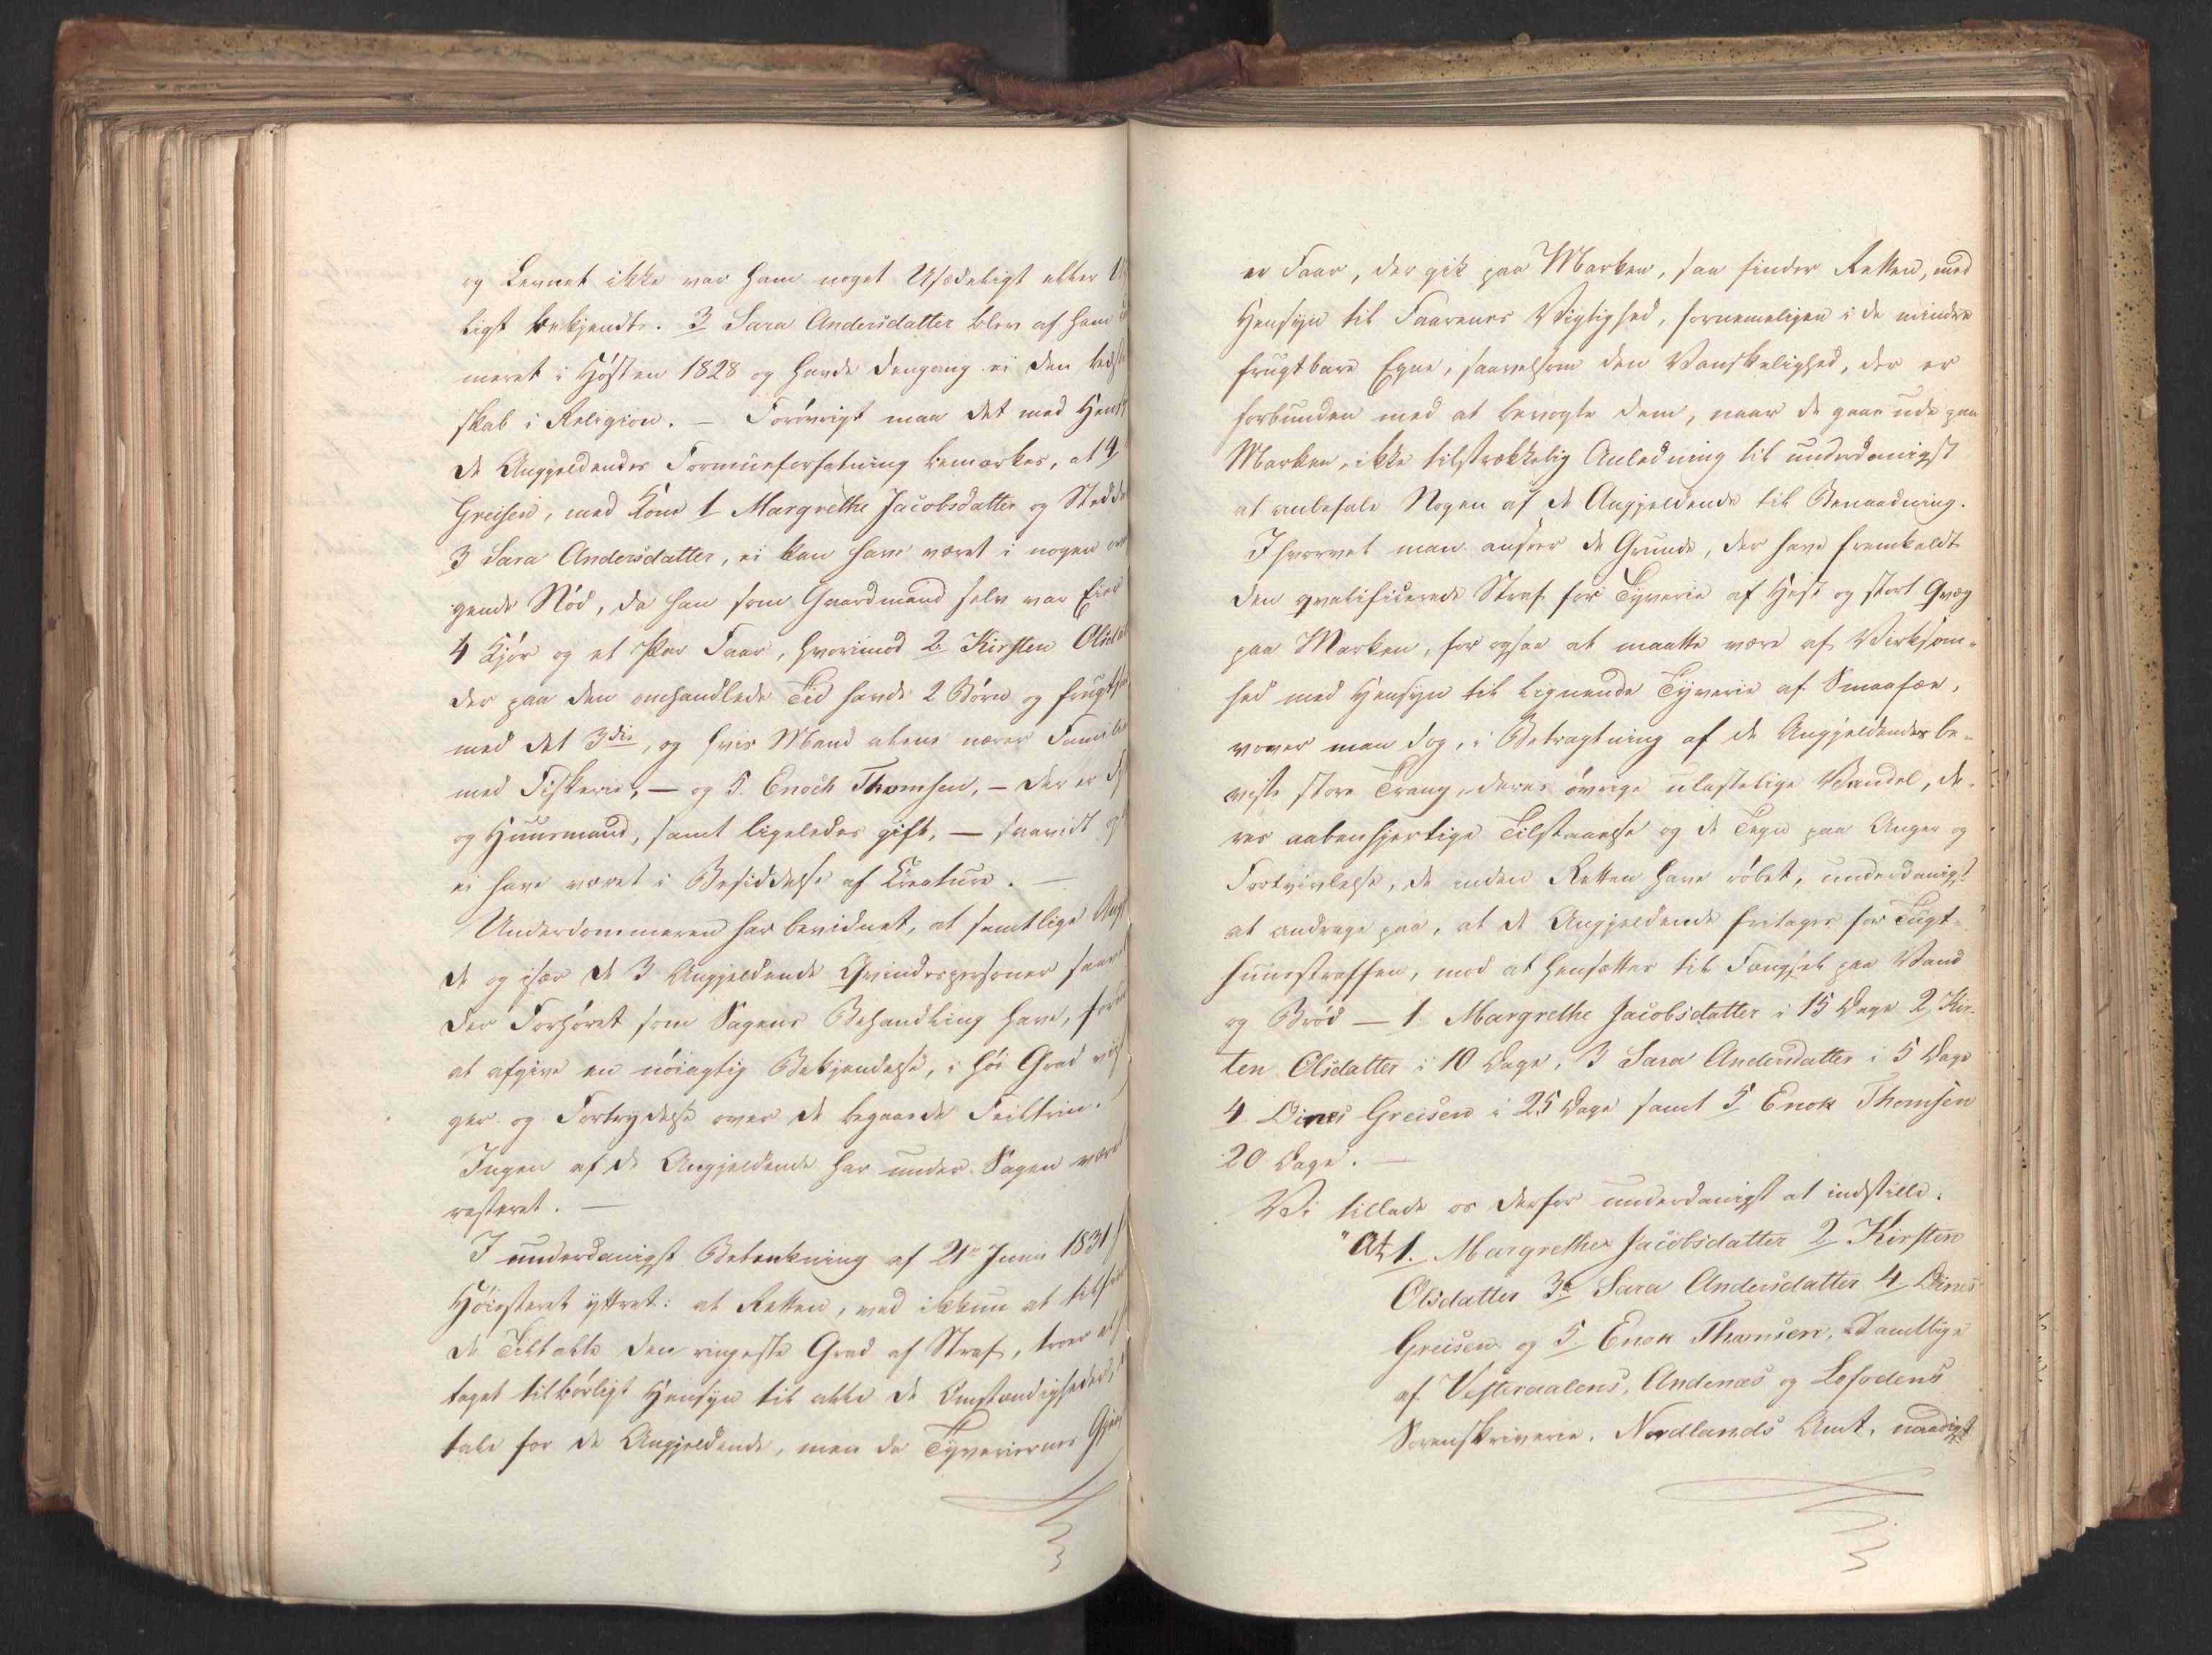 og Levnet ikke var ham noget Usædeligt eller
ligt bekjendt. 3 Sara Andersdatter blev af ham
meret i Høsten 1828 og havde dengang ei den
skab i Religion. — Forøvrigt maa det med
de Angjeldendes Formuesforfatning bemærkes, at 4
Greisen, med Kone 1 Margrethe Jacobsdatter og
3 Sara Andersdatter, ei kan have været i nogen
gende Nød, da han som Gaardmand selv var Eier
4 Kjør og et par Faar, hvorimod 2. Kirsten
der paa den omhandlede Tid havde 2 Børn og
med det 3die, og hvis Mand alene nærer
med Fiskerie, — og 5. Enoch Thomsen, — der er
og Huusmand, samt ligeledes gift, — saavidt
ei have været i Besiddelse af Kreature. —
Underdommeren har bevidnet, at samtlige
de og især de 3 Angjeldende Qvindespersoner
der Forhøret som Sagens Behandling have,
at afgive en nøiagtig Bekjendelse, i høi Grad
ger og Fortrydelse over de begaaede Feiltrin.
Ingen af de Angjeldende har under Sagen
resteret. —
I underdanigst Betænkning af 21de Junii 1831
Høiesteret yttret: at Retten, ved ikkun at
de Tiltalte den ringeste Grad af Straf, troer
taget tilbørligt Hensyn til alle de Omstændigheder,
tale for de Angjeldende, men da Tyveriernes
er Faar, der gik paa Marken, saa finder Retten, med
Hensyn til Faarenes Vigtighed, fornemmeligen i de mindre
frugtbare Egne, saavelsom den Vanskelighed, der er
forbunden med at bevogte dem, naar de gaae ude paa
Marken, ikke tilstrækkelig Anledning til underdanigst
at anbefale Nogen af de Angjeldende til Benaadning.
Ihvorvel man anseer de Grunde, der have fremkaldt
den qvalificerede Straf for Tyverie af Hest og stort Qvæg
paa Marken, for ogsaa at maatte være af Virksom-
hed med Hensyn til lignende Tyverie af Smaafæe,
vover man dog, i Betragtning af de Angjeldendes be-
viste store Trang, deres øvrige ulastelige Vandel, de-
res aabenhjertige Tilstaaelse og de Tegn paa Anger og
Fortvivlelse, de inden Retten have røbet, underdanigst
at andrage paa, at de Angjeldende fritages for Tugt-
huusstraffen, mod at hensættes til Fængsel paa Vand
og Brød — 1. Margrethe Jacobsdatter i 15 Dage 2, Kir-
ten Olsdatter i 10 Dage, 3 Sara Andersdatter i 5 Dage
4 Dines Greisen i 25 Dage samt 5 Enok Thomsen
20 Dage. —
Vi tillade os derfor underdanigst at indstille:
"At 1. Margrethe Jacobsdatter 2 Kirsten
Olsdatter 3 Sara Andersdatter 4 Dines
Greisen og 5 Enok Thomsen, Samtlige
af Vesteraalens, Andenæs og Lofodens
Sorenskriverie, Nordlands Amt, naadigst